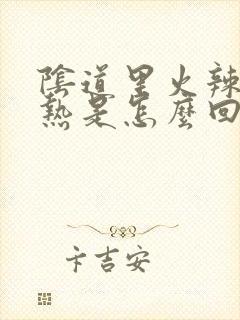 陰道里火辣
熱是怎麼回
卡吉安